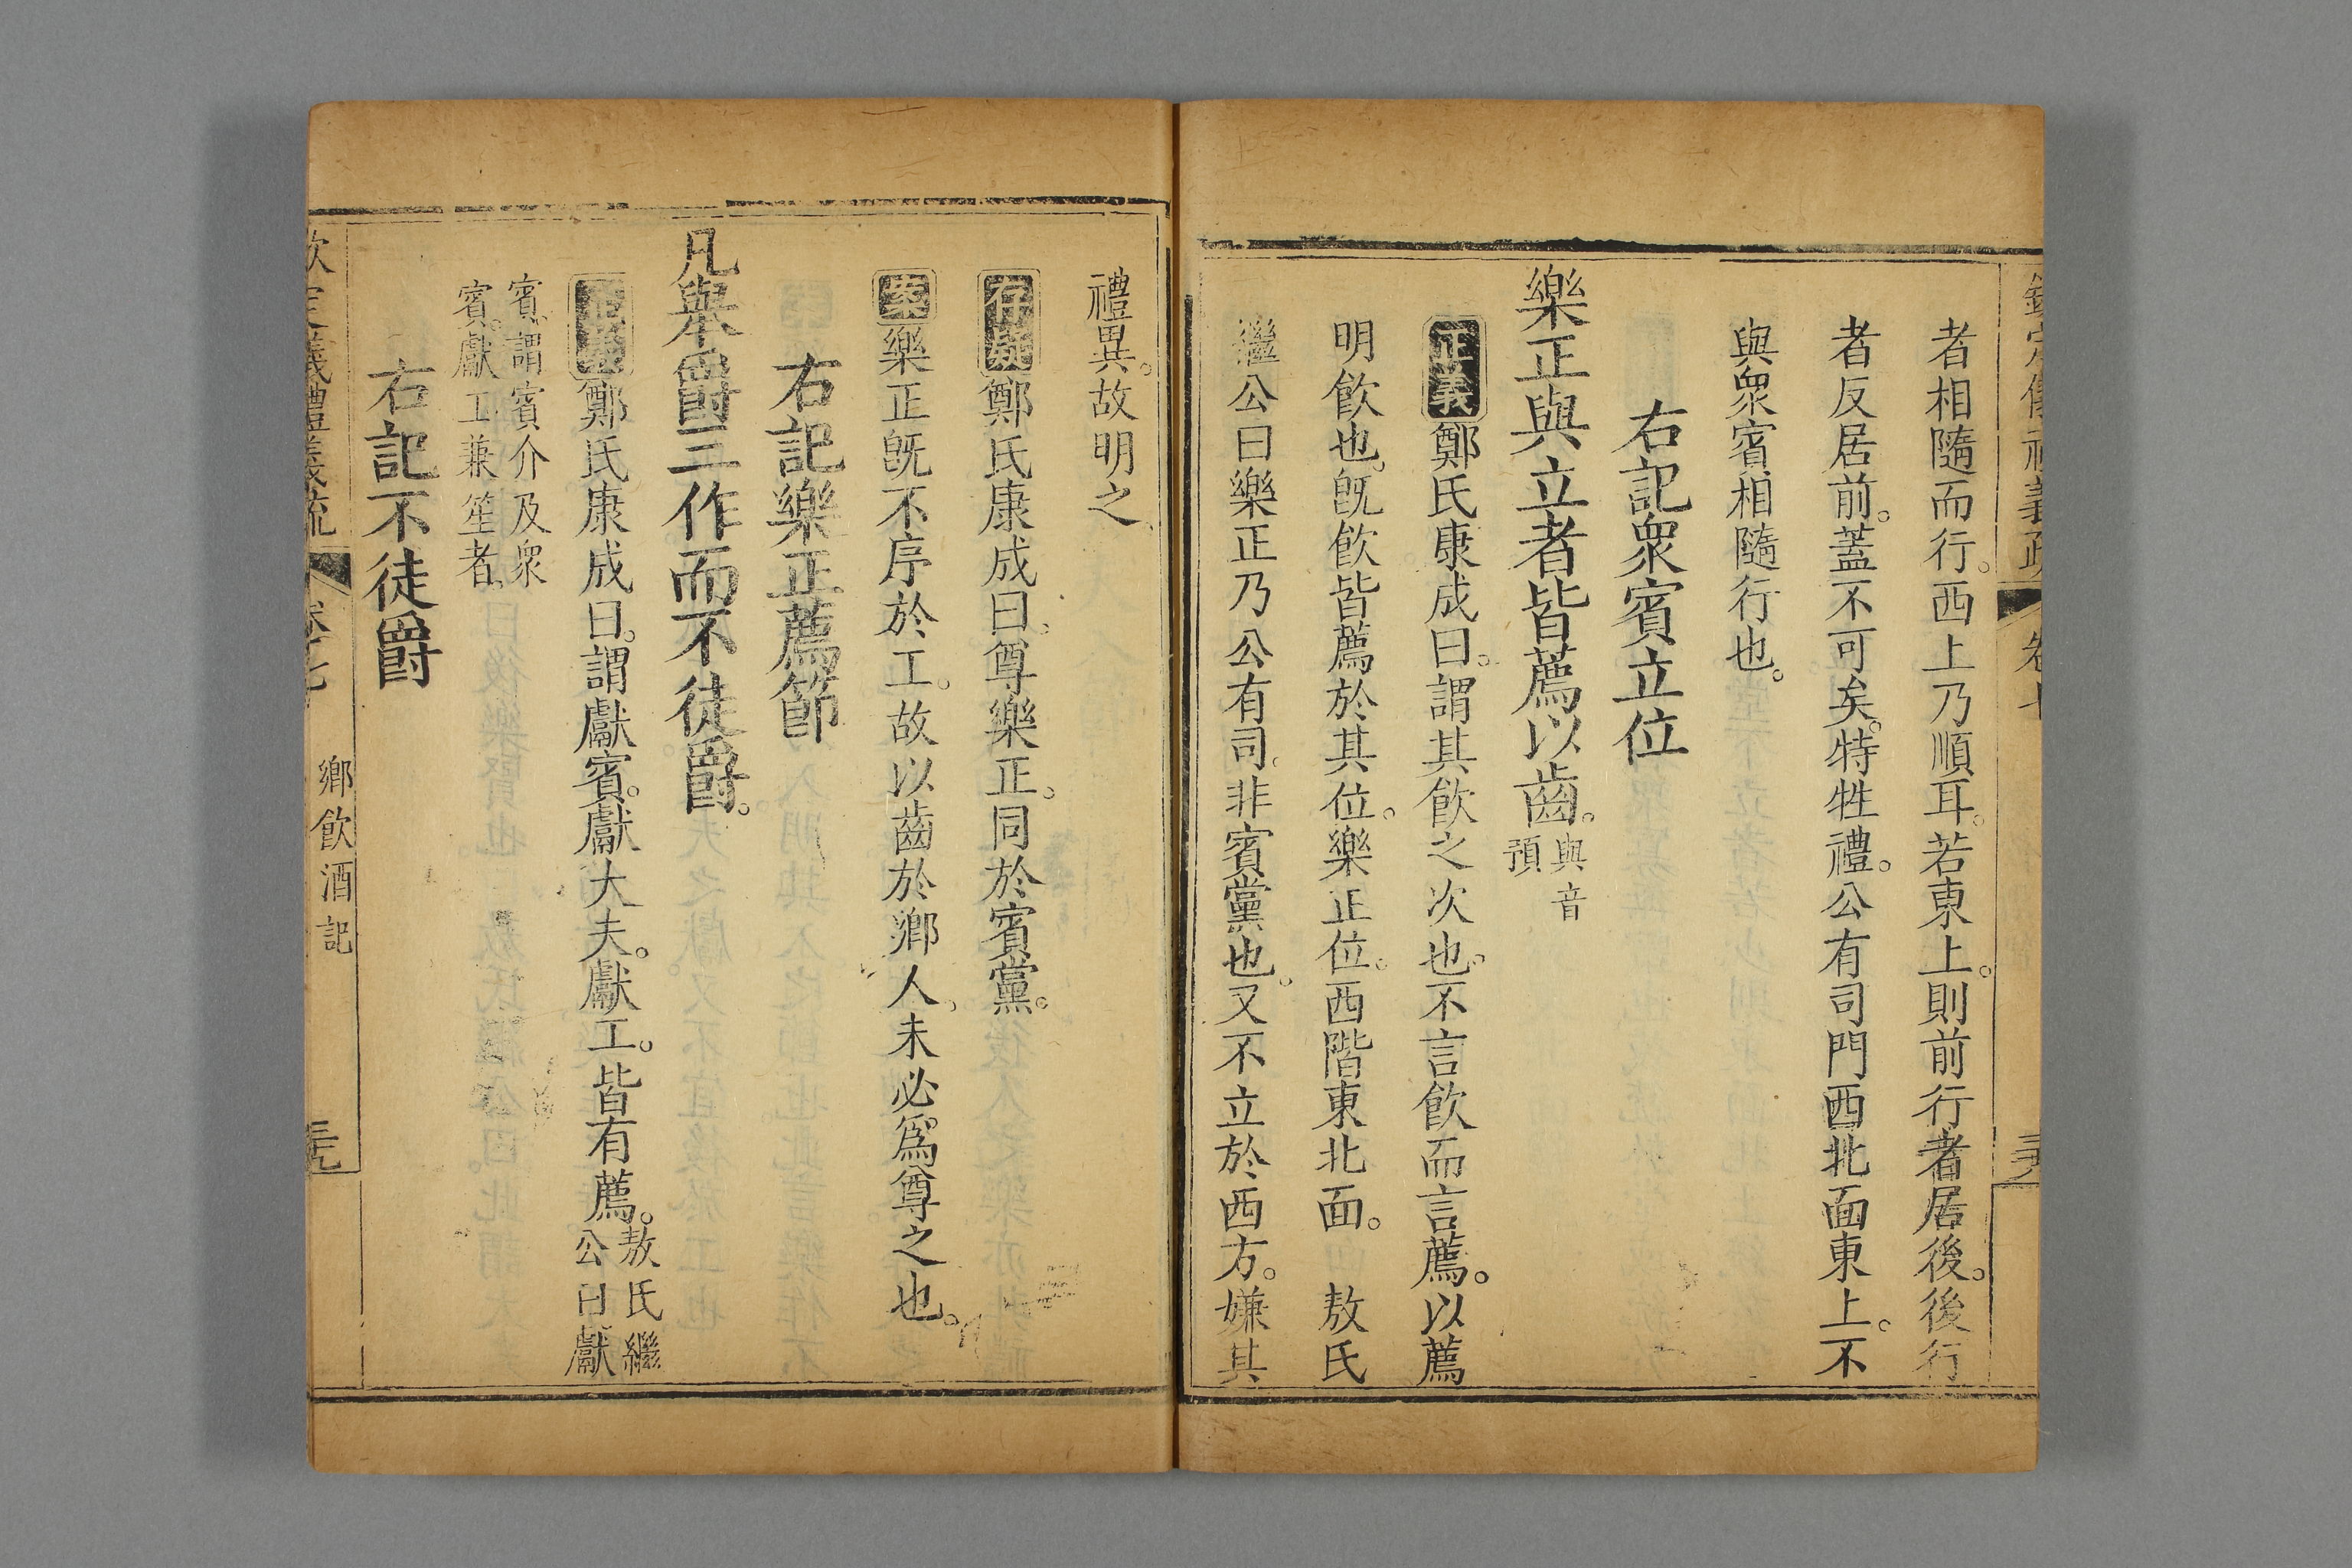 者相隨而行。西上乃順耳。若東上。則前行者居後。後行
者反居前。蓋不可矣。特牲禮。公有司門西北面東上。不
與衆賓相隨行也。
右記衆賓立位
樂正與立者皆薦以齒。與音預
正義鄭氏康成曰。謂其飮之次也。不言飮而言薦。以薦
明飮也。旣飮皆薦於其位。樂正位。西階東北面。敖氏
繼公曰樂正乃公有司。非賓黨也。又不立於西方。嫌其
禮異。故明之。
存疑鄭氏康成曰。尊樂正。同於賓黨。
案樂正旣不序於工。故以齒於鄉人。未必爲尊之也。
右記樂正薦節
凡舉爵三作而不徒爵。
正義鄭氏康成曰。謂獻賓。獻大夫。獻工。皆有薦。敖氏繼公曰獻
賓。謂賓介及衆賓。獻工兼笙者。
右記不徒爵
欽定義禮義疏 卷七 鄉飮酒記